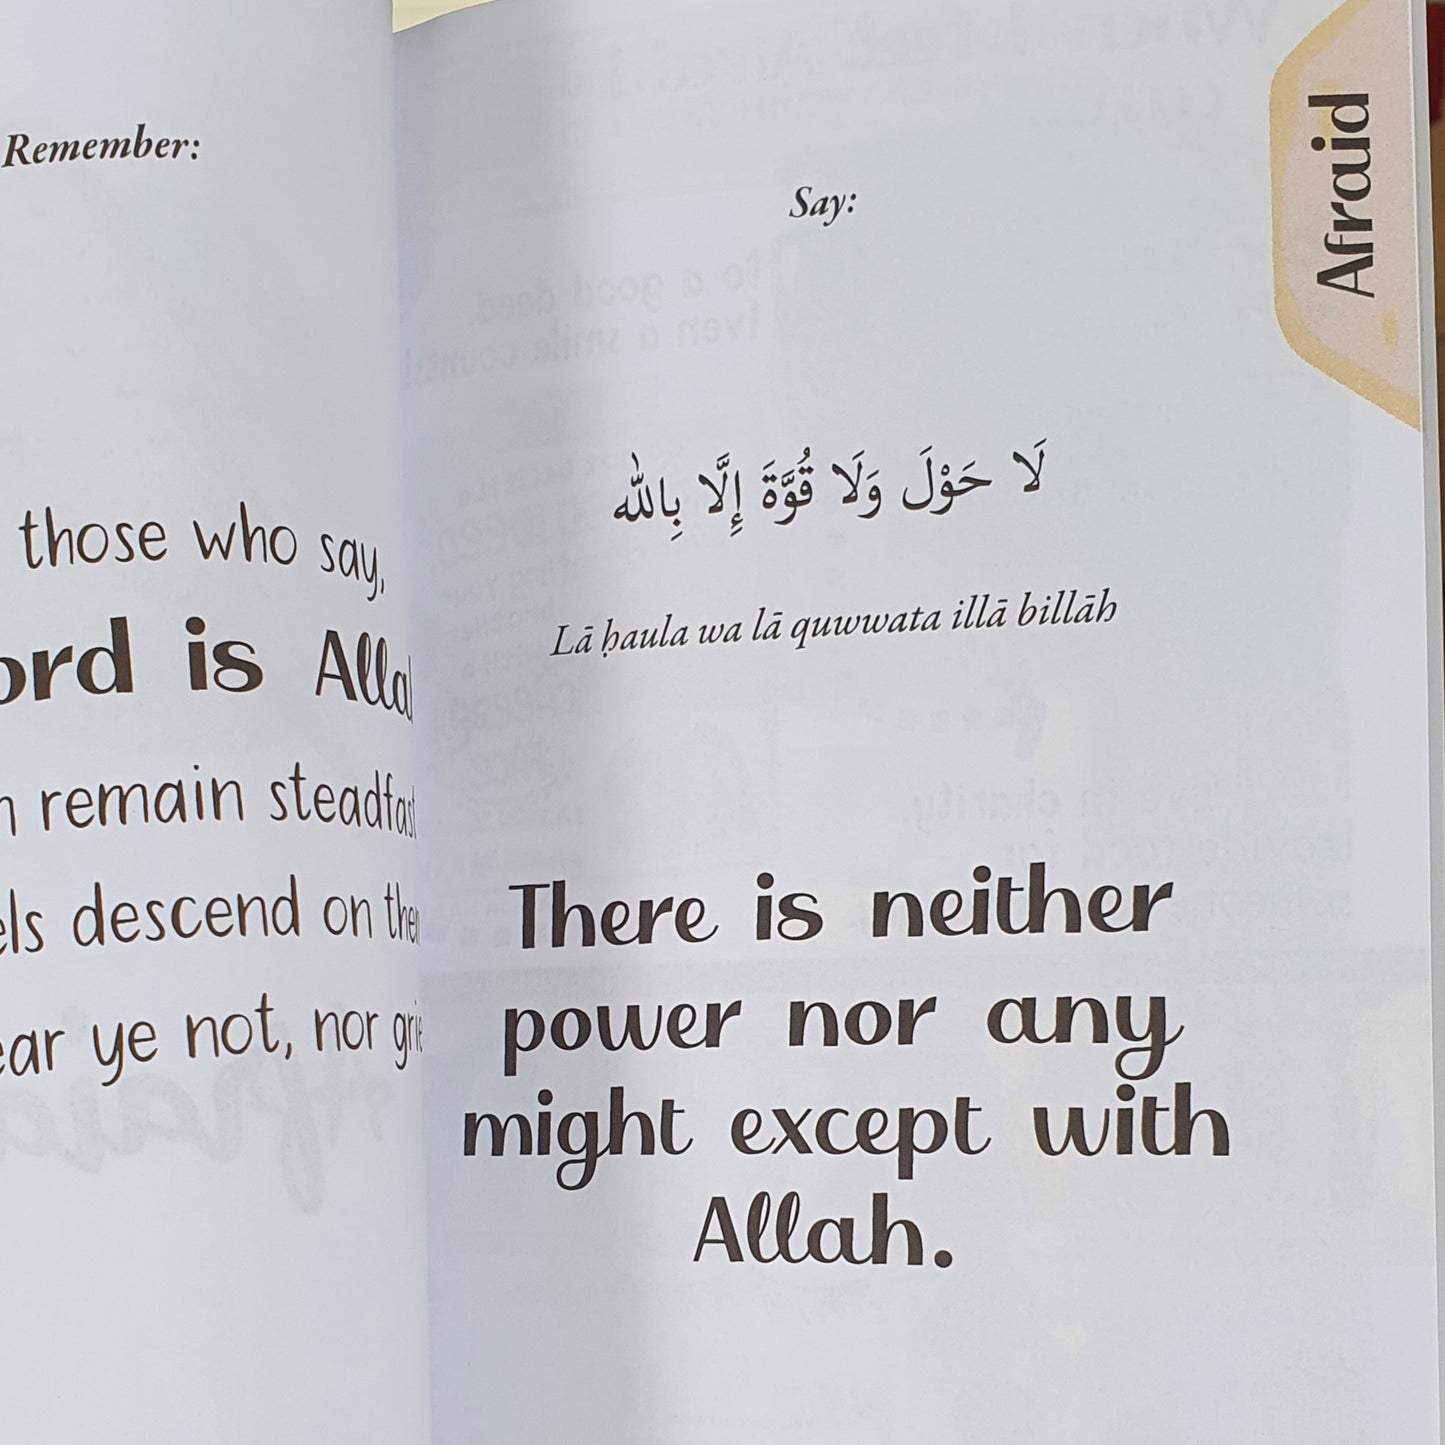 Remember:
those who say,
is
remain steadfast
descend on them
ye not, nor
Afraid
Say:
لَا حَوْلَ وَلَا قُوَّةَ إِلَّا بِاللّٰه
Lā ḥaula wa lā quwwata illā billāh
There is neither
power nor any
might except with
Allah.